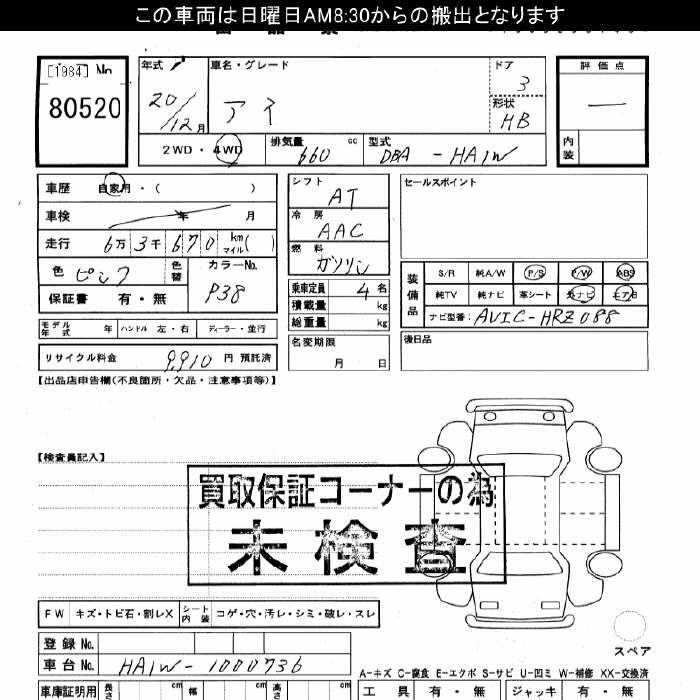 この車両は日曜日AM8:30からの搬出となります
[1984] No 80520
年式 20/12月
車名・グレード アイ
ドア 3
形状 HB
評価点 —
内装
2WD・4WD
排気量 660 cc
型式 DBA-HA1W
車歴 自家用・( )
車検 年 月
走行 6万3千670 km マイル( )
色 ピンク 色替
カラーNo. P38
保証書 有・無
モデル年式 年 ハンドル 左・右 ディーラー・並行
リサイクル料金 9,910 円 預託済
シフト AT
冷房 AAC
燃料 ガソリン
乗車定員 4 名
積載量 kg
総重量 kg
名変期限 月 日
セールスポイント
装備品
S/R 純A/W P/S P/W ABS
純TV 純ナビ 革シート 外ナビ エアB
ナビ型番: AVIC-HRZ088
後日品
【出品店申告欄(不良箇所・欠品・注意事項等)】
【検査員記入】
買取保証コーナーの為
未検査
FW キズ・トビ石・割レX シート内装 コゲ・穴・汚レ・シミ・破レ・スレ
登録No.
車台No. HA1W-1000736
スペア
A-キズ C-腐食 E-エクボ S-サビ U-凹ミ W-補修 XX-交換済
車庫証明用 長さ cm 幅 cm 高さ cm
工具 有・無 ジャッキ 有・無